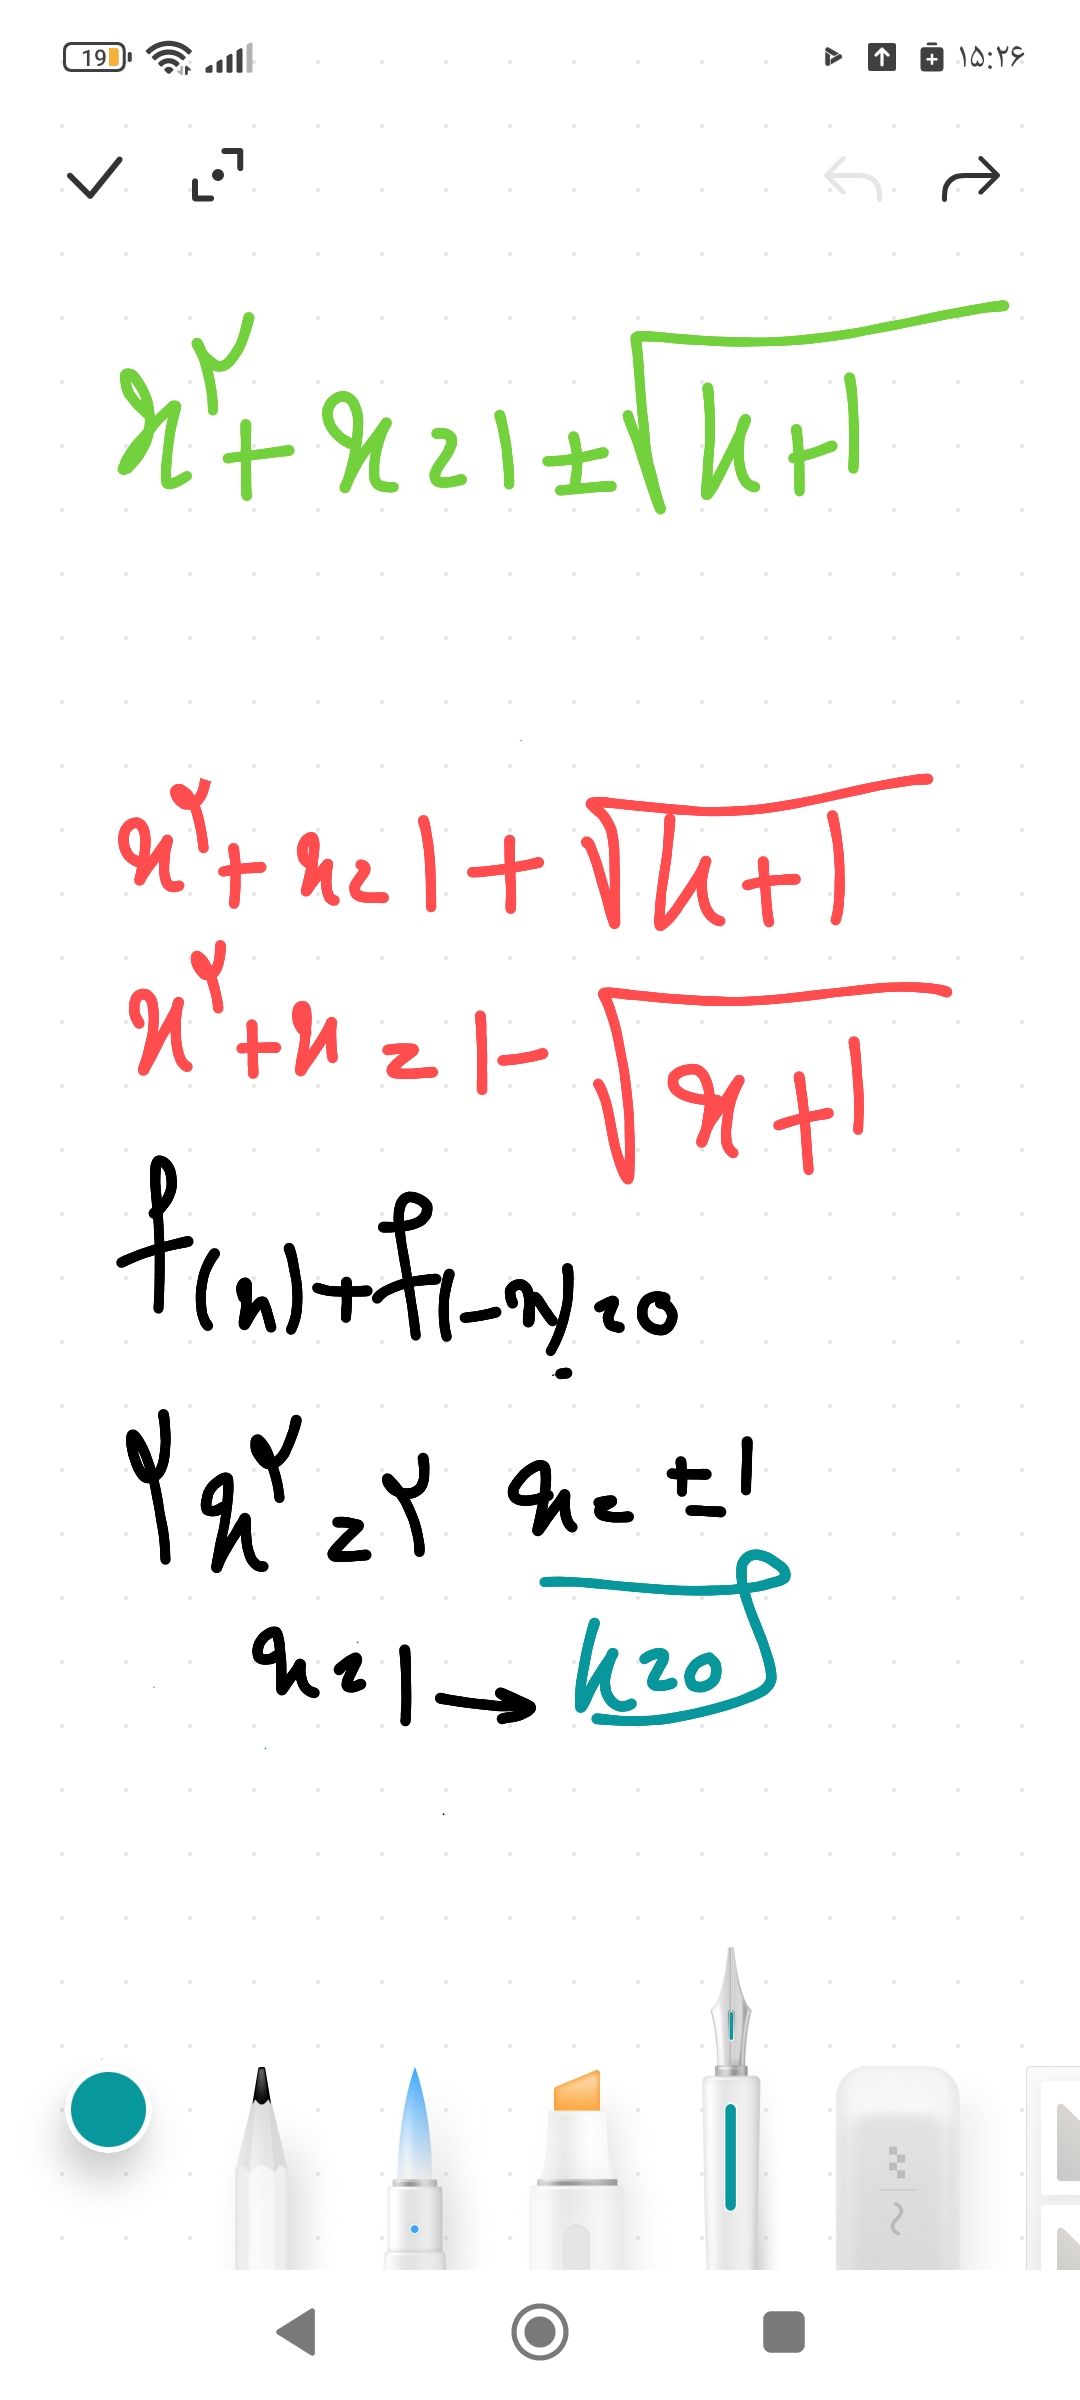 19 ۱۵:۲۶
x²+x=1±√k+1
x²+x=1+√k+1
x²+x=1-√x+1
f(x)+f(-x)=0
۲x²=۲ x=±1
x=1→k=0